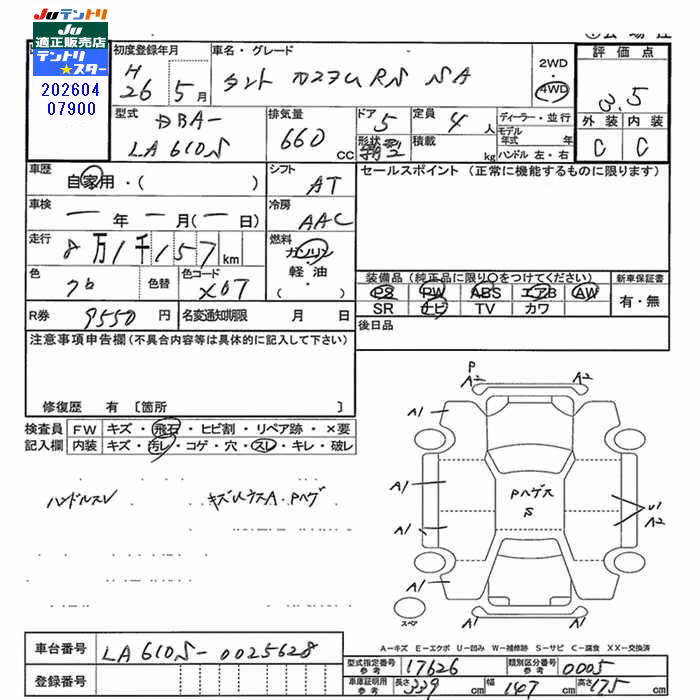 JUテントリ
JU
適正販売店
テントリ
★スター
202604
07900
初度登録年月
H
26 5月
車名・グレード
タント カスタムRS SA
2WD
・
4WD
評価点
3.5
外装 内装
C C
型式
DBA-
LA610S
排気量
660
CC
ドア
5
形状
定員
4 人
積載
kg
ディーラー・並行
モデル
年式 年
ハンドル 左・右
車歴
自家用・( )
シフト
AT
セールスポイント (正常に機能するものに限ります)
車検
一 年 一 月 (一 日)
冷房
AAC
走行
8万1千157km
燃料
ガソリン
軽油
・( )
色
クロ
色替
色コード
X07
装備品 (純正品に限り○をつけてください)
PS PW ABS エアB AW
SR ナビ TV カワ
新車保証書
有・無
R券 9550 円
名変通知期限 月 日
後日品
注意事項申告欄 (不具合内容等は具体的に記入して下さい)
修復歴 有 〔箇所 〕
検査員
記入欄
FW キズ・飛石・ヒビ割・リペア跡・×要
内装 キズ・汚レ・コゲ・穴・スレ・キレ・破レ
ハンドルスレ
キズ小ウスA・Pハゲ
P
A2
A2
A1
A1
A1
A1
Pハゲス
S
U1
A2
スペア
A-キズ E-エクボ U-凹み W-補修跡 S-サビ C-腐食 XX-交換済
車台番号
LA610S-0025628
登録番号
型式指定番号
参考
17626
類別区分番号
参考
0005
車庫証明用
参考
長さ 339 cm
幅 147 cm
高さ 175 cm